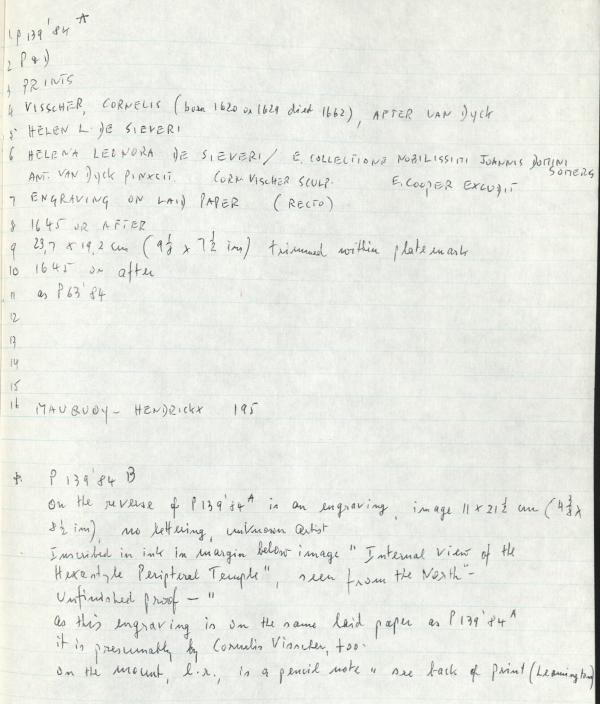 1 P 139'84 A
2 P & D
3 PRINTS
4 VISSCHER, CORNELIS (born 1620 or 1629 died 1662), AFTER VAN DYCK
5 HELEN L. DE SIEVERI
6 HELENA LEONORA DE SIEVERI / E. COLLECTIONE NOBILISSIMI JOANNIS DOMINI SOMERS
ANT. VAN DYCK PINXIT. CORN VISCHER SCULP. E. COOPER EXCUDIT
7 ENGRAVING ON LAID PAPER (RECTO)
8 1645 OR AFTER
9 23,7 x 19,2 cm (9 3/8 x 7 1/2 ins) trimmed within platemark
10 1645 or after
11 as P63'84
12
13
14
15
16 MAUQUOY-HENDRICKX 195
P 139'84 B
On the reverse of P139'84 A is an engraving, image 11 x 21 1/2 cm (4 3/8 x
8 1/2 ins), no lettering, unknown artist
Inscribed in ink in margin below image " Internal view of the
Hexastyle Peripteral Temple", seen from the North"-
Unfinished proof - "
as this engraving is on the same laid paper as P139'84 A
it is presumably by Cornelis Visscher, too.
On the mount, l.r., is a pencil note " see back of print (Leamington)